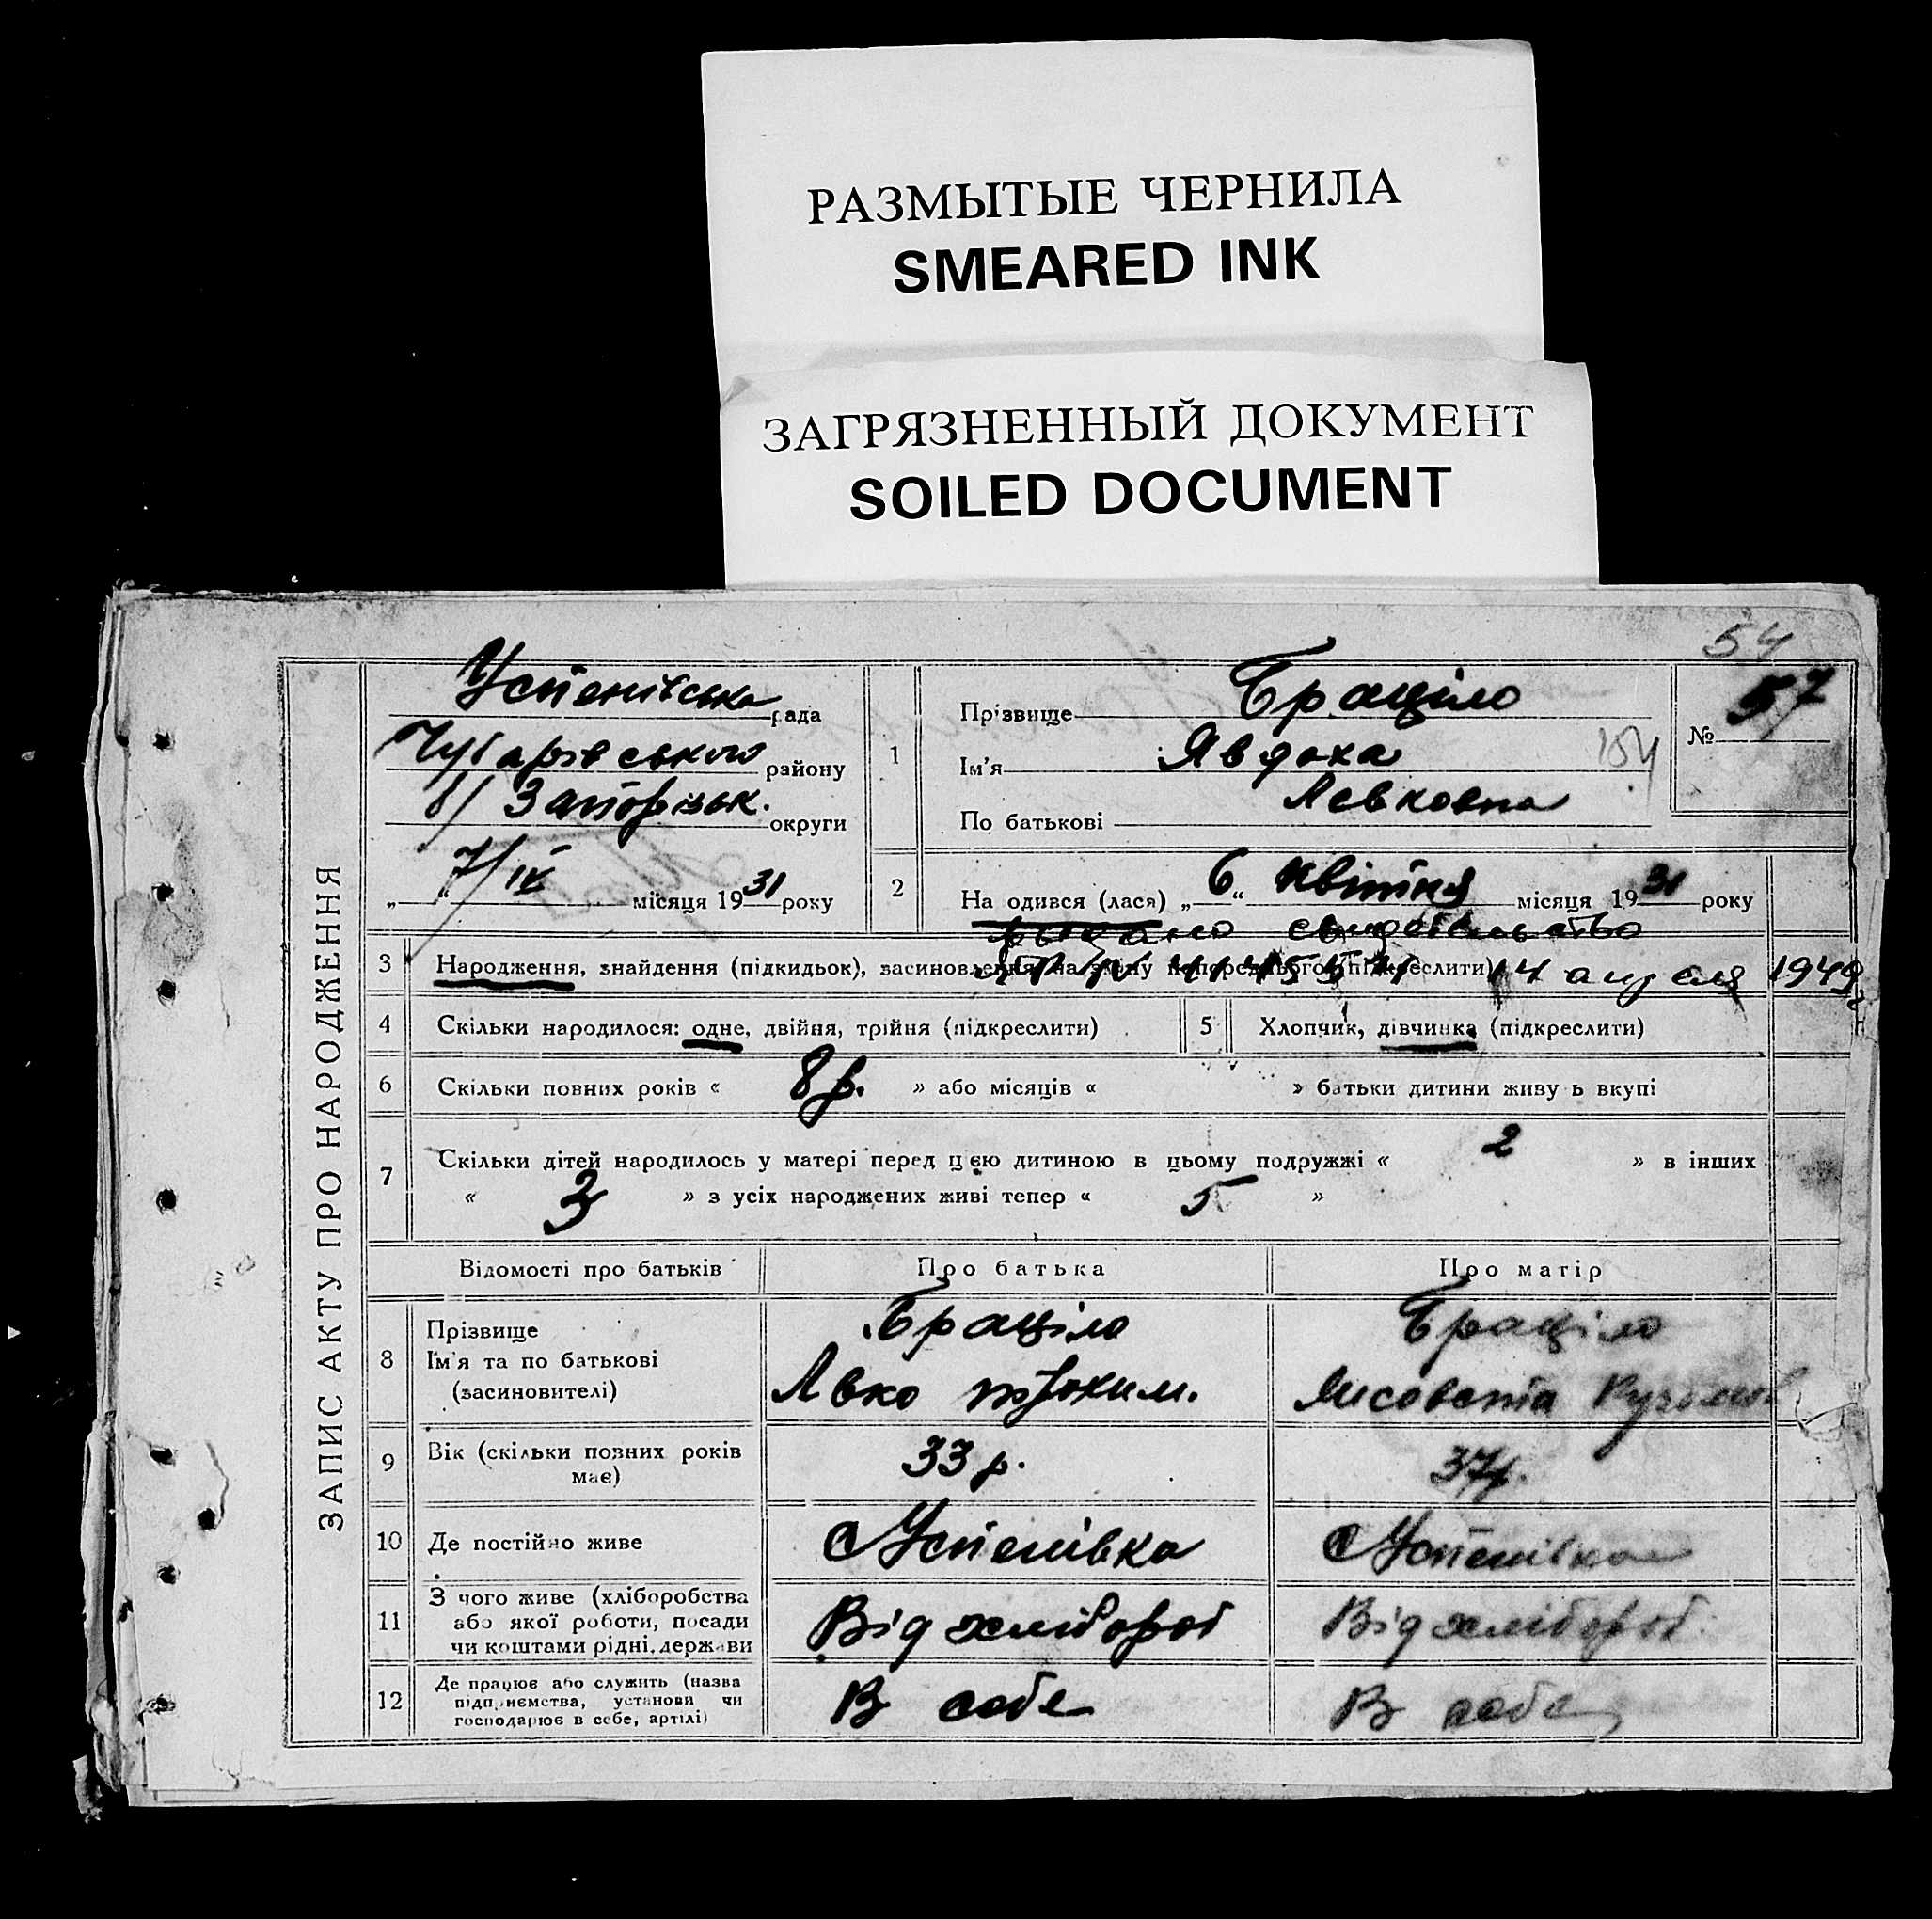 РАЗМЫТЫЕ ЧЕРНИЛА
SMEARED INK
ЗАГРЯЗНЕННЫЙ ДОКУМЕНТ
SOILED DOCUMENT
54
ЗАПИС АКТУ ПРО НАРОДЖЕННЯ
Успенівська рада
Чубарівського району
б/ Запорізьк. округи
7/IV місяця 1931 року
1
Прізвище Браціло
Ім'я Явдоха
По батькові Левковна
154
№ 57
2
На одився (лася) „ 6 “ Квітня місяця 1931 року
выдано свидетельство
14 апреля 1949 г
3 Народження, знайдення (підкидьок), засиновлення на зміну попереднього (підкреслити)
4 Скільки народилося: одне, двійня, трійня (підкреслити)
5 Хлопчик, дівчинка (підкреслити)
6 Скільки повних років « 8 р. » або місяців « » батьки дитини живу ь вкупі
7 Скільки дітей народилось у матері перед цією дитиною в цьому подружжі « 2 » в інших
« 3 » з усіх народжених живі тепер « 5 »
Відомості про батьків Про батька Про матір
8
Прізвище Браціло Браціло
Ім'я та по батькові
(засиновителі) Лвко Трохим. Лисовета
9 Вік (скільки повних років має) 33 р. 37 р.
10 Де постійно живе с Успенівка с Успенівка
11
З чого живе (хліборобства
або якої роботи, посади
чи коштами рідні, держави
Від хлібороб Від хлібороб.
12
Де працює або служить (назва
підприємства, установи чи
господарює в себе, артілі)
В себе В себе